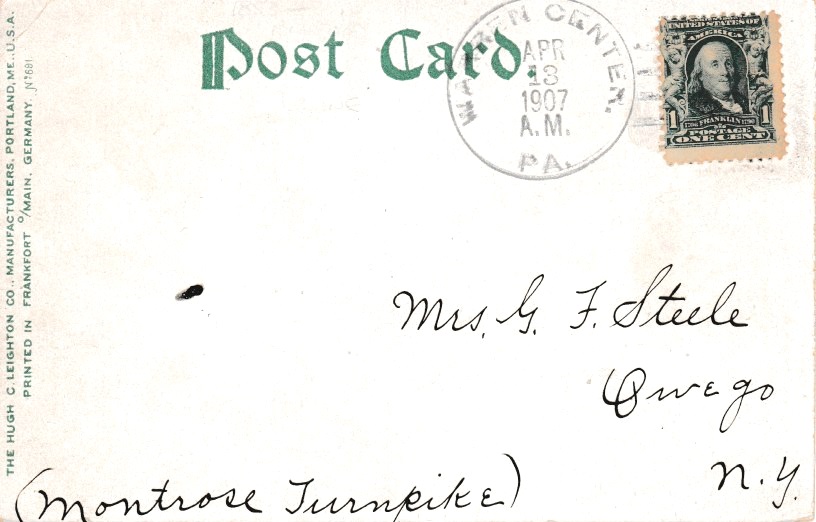 Post Card.
WARREN CENTER.
APR
13
1907
A.M.
PA.
UNITED STATES OF
AMERICA
1 1
1706 FRANKLIN 1790
POSTAGE
ONE CENT
THE HUGH C. LEIGHTON CO., MANUFACTURERS, PORTLAND, ME., U.S.A.
PRINTED IN FRANKFORT o/MAIN, GERMANY.
Mrs. G. F. Steele
Owego
N.Y.
(Montrose Turnpike)